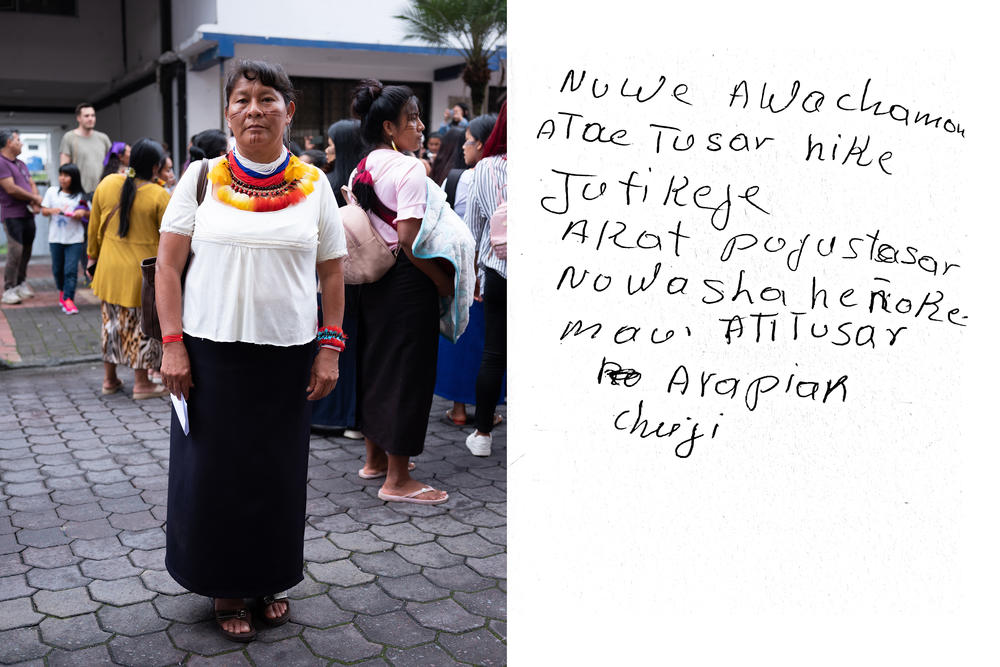 Nuwe Awachamou
ATae Tusar hiKe
Jutikeje
AKat pojustasar
Nuwasha heñoKe
maui ATiTusar
Arapian
chuiji